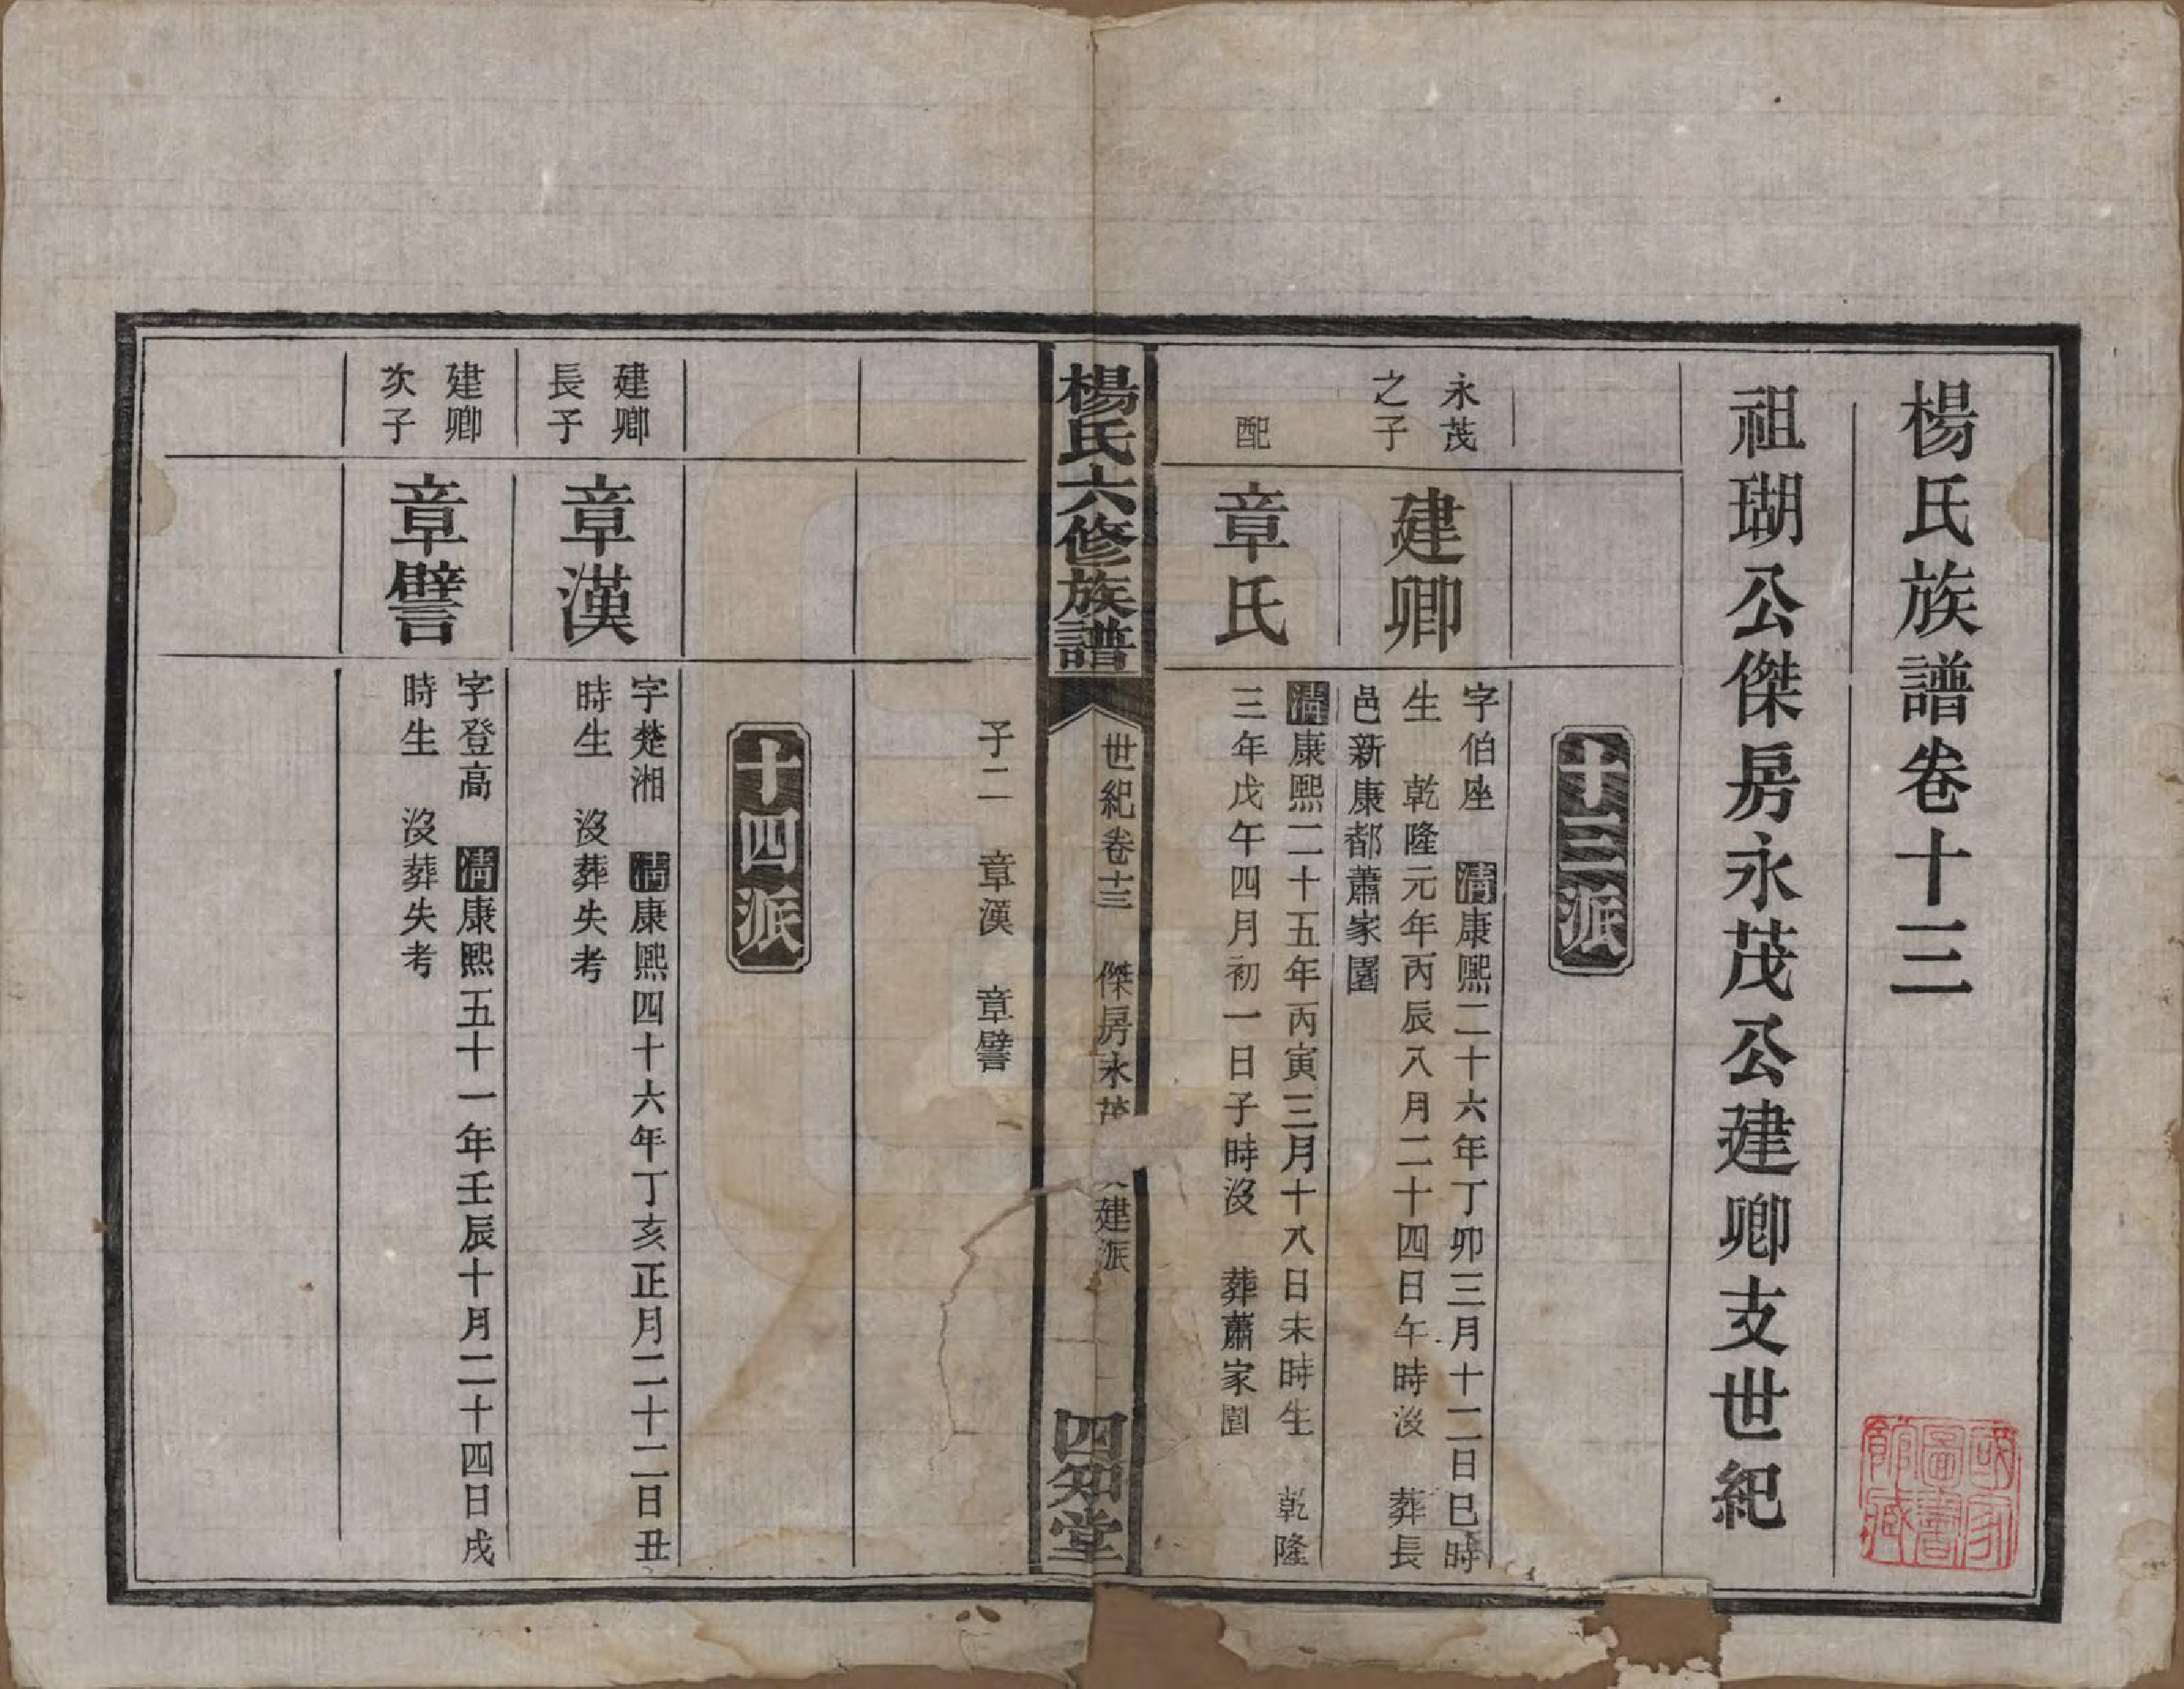 楊氏族譜卷十三
祖瑚公傑房永茂公建卿支世紀
十三派
永茂
之子
建卿
字伯座 清康熙二十六年丁卯三月十二日巳時
生 乾隆元年丙辰八月二十四日午時沒 葬長
邑新康都蕭家園
配
章氏
清康熙二十五年丙寅三月十八日未時生 乾隆
三年戊午四月初一日子時沒 葬蕭家園
楊氏六修族譜
世紀卷十三 傑房永茂
建派
四知堂
子二 章漢 章譬
十四派
建卿
長子
章漢
字楚湘 清康熙四十六年丁亥正月二十二日丑
時生 沒葬失考
建卿
次子
章譬
字登高 清康熙五十一年壬辰十月二十四日戌
時生 沒葬失考
國家
圖書
館藏